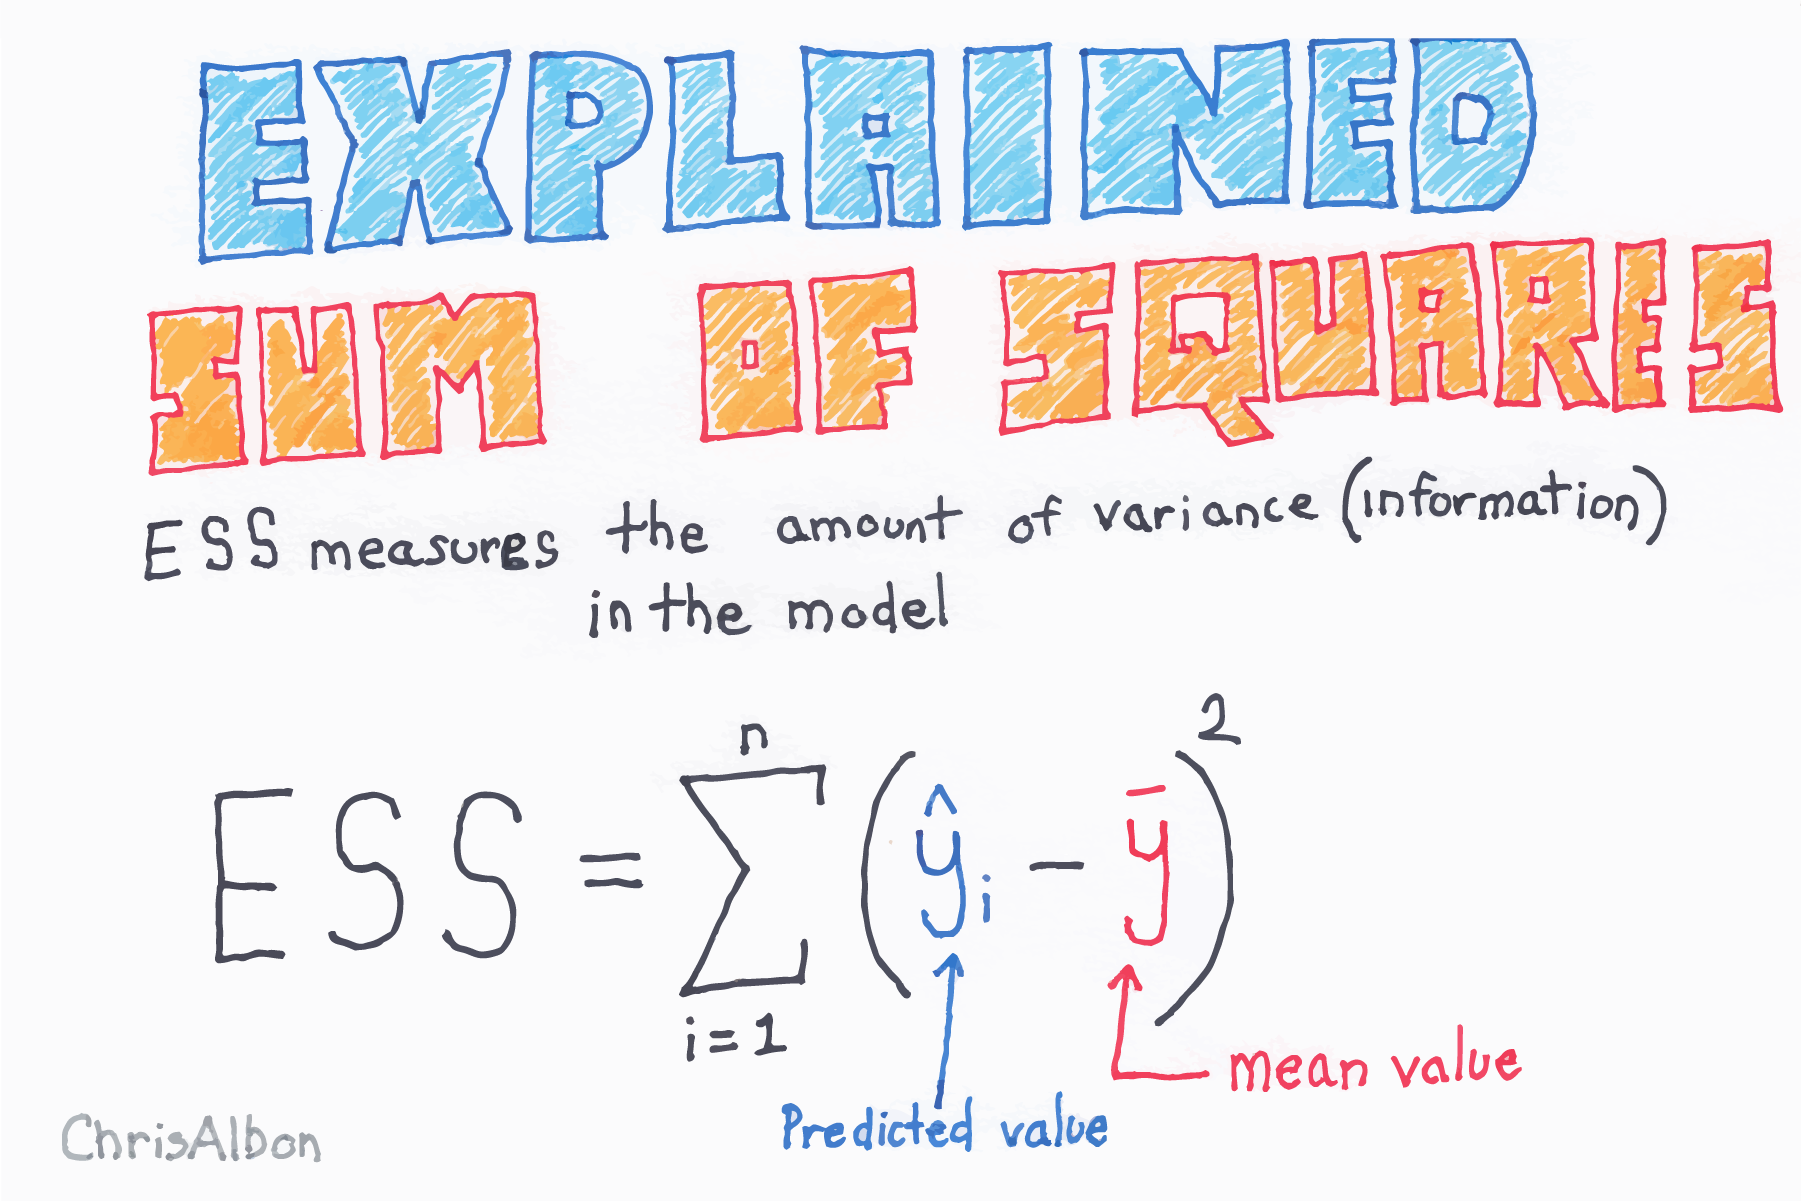 EXPLAINED
SUM OF SQUARES
ESS measures the amount of variance (information)
in the model
ESS = n ∑ i=1 (ŷi − ȳ)2
mean value
Predicted value
ChrisAlbon